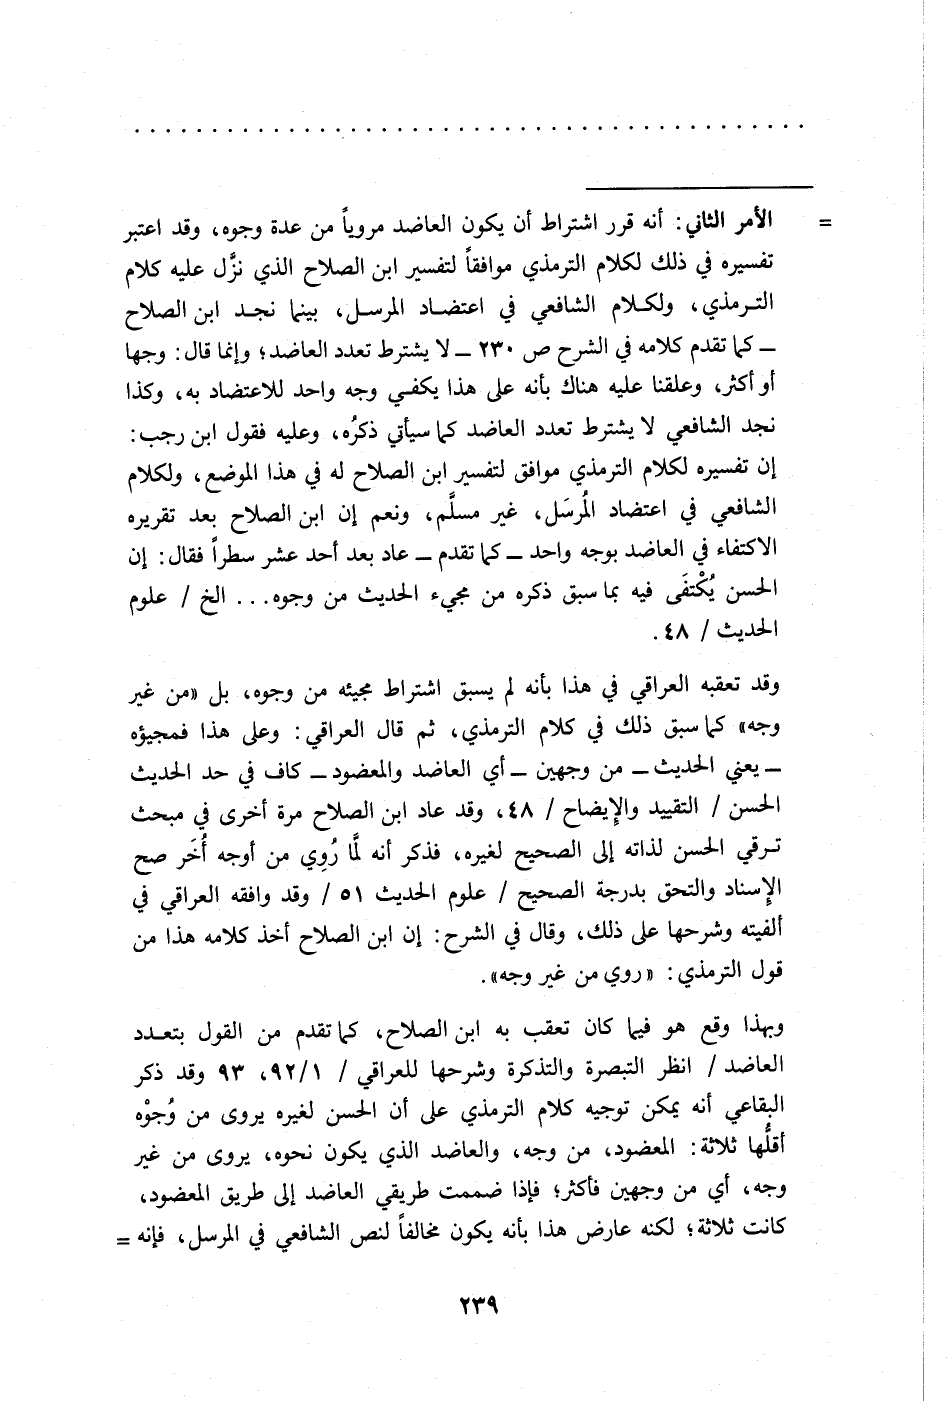 . . . . . . . . . . . . . . . . . . . . . . . . . . . . . . . . . . . . . . .
= الأمر الثاني: أنه قرر اشتراط أن يكون العاضد مروياً من عدة وجوه، وقد اعتبر
تفسيره في ذلك لكلام الترمذي موافقاً لتفسير ابن الصلاح الذي نزَّل عليه كلام
الترمذي، ولكلام الشافعي في اعتضاد المرسل، بينما نجد ابن الصلاح
ـ كما تقدم كلامه في الشرح ص ٢٣٠ ـ لا يشترط تعدد العاضد؛ وإنما قال: وجها
أو أكثر، وعلقنا عليه هناك بأنه على هذا يكفي وجه واحد للاعتضاد به، وكذا
نجد الشافعي لا يشترط تعدد العاضد كما سيأتي ذكرُه، وعليه فقول ابن رجب:
إن تفسيره لكلام الترمذي موافق لتفسير ابن الصلاح له في هذا الموضع، ولكلام
الشافعي في اعتضاد المُرسَل، غير مسلَّم، ونعم إن ابن الصلاح بعد تقريره
الاكتفاء في العاضد بوجه واحد ـ كما تقدم ـ عاد بعد أحد عشر سطراً فقال: إن
الحسن يُكْتفَى فيه بما سبق ذكره من مجيء الحديث من وجوه... الخ / علوم
الحديث / ٤٨.
وقد تعقبه العراقي في هذا بأنه لم يسبق اشتراط مجيئه من وجوه، بل «من غير
وجه» كما سبق ذلك في كلام الترمذي، ثم قال العراقي: وعلى هذا فمجيؤه
ـ يعني الحديث ـ من وجهين ـ أي العاضد والمعضود ـ كاف في حد الحديث
الحسن / التقييد والإيضاح / ٤٨، وقد عاد ابن الصلاح مرة أخرى في مبحث
ترقي الحسن لذاته إلى الصحيح لغيره، فذكر أنه لمَّا رُوِي من أوجه أُخَر صح
الإسناد والتحق بدرجة الصحيح / علوم الحديث ٥١ / وقد وافقه العراقي في
ألفيته وشرحها على ذلك، وقال في الشرح: إن ابن الصلاح أخذ كلامه هذا من
قول الترمذي: «روي من غير وجه».
وبهذا وقع هو فيما كان تعقب به ابن الصلاح، كما تقدم من القول بتعدد
العاضد / انظر التبصرة والتذكرة وشرحها للعراقي / ٩٢/١، ٩٣ وقد ذكر
البقاعي أنه يمكن توجيه كلام الترمذي على أن الحسن لغيره يروى من وُجوْه
أقلُّها ثلاثة: المعضود، من وجه، والعاضد الذي يكون نحوه، يروى من غير
وجه، أي من وجهين فأكثر؛ فإذا ضممت طريقي العاضد إلى طريق المعضود،
كانت ثلاثة؛ لكنه عارض هذا بأنه يكون مخالفاً لنص الشافعي في المرسل، فإنه =
٢٣٩